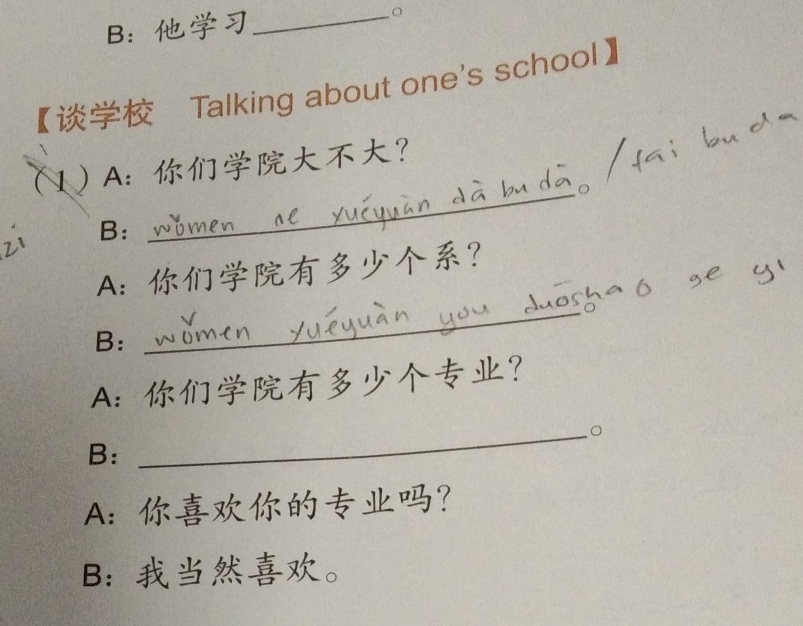 B：他学习______。
【谈学校 Talking about one's school】
（1）A：你们学院大不大？
B：wǒmen ne xuéyuàn dà bu dā。/ tai bu da
zi
A：你们学院有多少个系？
B：wǒmen xuéyuàn you duōshao ge yi。
A：你们学院有多少个专业？
B：______。
A：你喜欢你的专业吗？
B：我当然喜欢。